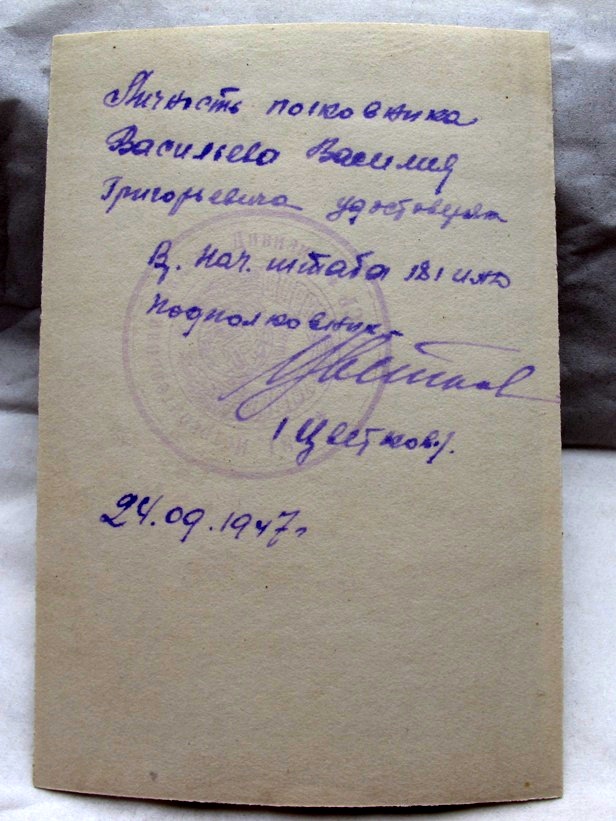 Личность полковника
Васильева Василия
Григорьевича удостоверяю
В. нач. штаба 181
подполковник
Цветков
/Цветков/.
24.09.1947г